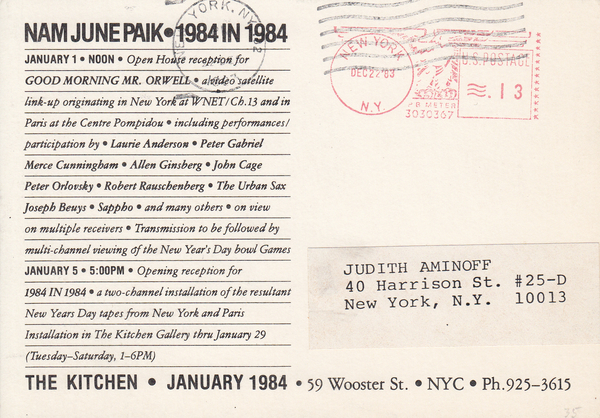 NAM JUNE PAIK • 1984 IN 1984
JANUARY 1 • NOON • Open House reception for
GOOD MORNING MR. ORWELL • a video satellite
link-up originating in New York at WNET/Ch.13 and in
Paris at the Centre Pompidou • including performances/
participation by • Laurie Anderson • Peter Gabriel
Merce Cunningham • Allen Ginsberg • John Cage
Peter Orlovsky • Robert Rauschenberg • The Urban Sax
Joseph Beuys • Sappho • and many others • on view
on multiple receivers • Transmission to be followed by
multi-channel viewing of the New Year's Day bowl Games
JANUARY 5 • 5:00PM • Opening reception for
1984 IN 1984 • a two-channel installation of the resultant
New Years Day tapes from New York and Paris
Installation in The Kitchen Gallery thru January 29
(Tuesday–Saturday, 1–6PM)
THE KITCHEN • JANUARY 1984 • 59 Wooster St. • NYC • Ph.925–3615
YORK, NY
NEW YORK
DEC 22 '83
N.Y.
U.S. POSTAGE
.13
P.B. METER
3030367
JUDITH AMINOFF
40 Harrison St. #25-D
New York, N.Y. 10013